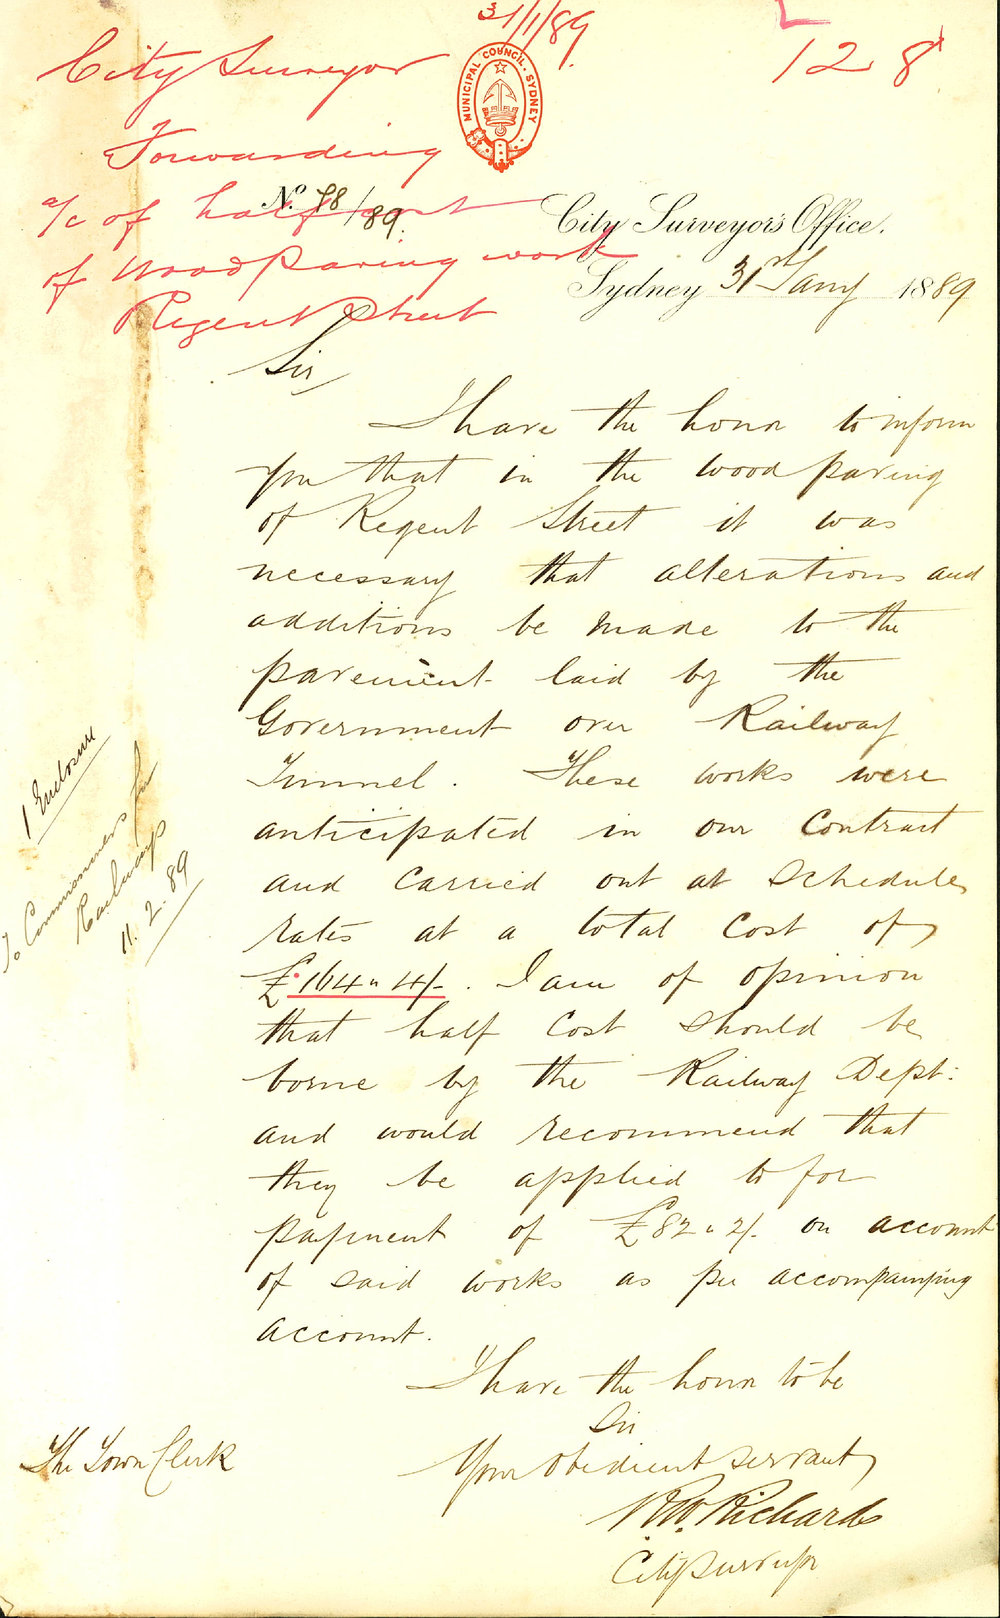 31/1/89
City Surveyor
Forwarding
a/c of half cost
of Woodpaving work
Regent Street
128
MUNICIPAL COUNCIL · SYDNEY
No. 78/89.
City Surveyor's Office.
Sydney 31st Jany 1889
Sir
I have the honor to inform
you that in the wood paving
of Regent Street it was
necessary that alterations and
additions be made to the
pavement laid by the
Government over Railway
Tunnel. These works were
anticipated in our Contract
and carried out at Schedule
rates at a total cost of
£164" 4/-. I am of opinion
that half cost should be
borne by the Railway Dept:
and would recommend that
they be applied to for
payment of £82" 2/- on account
of said works as per accompanying
account.
I have the honor to be
Sir
Your obedient servant
R.W. Richards
City Surveyor
The Town Clerk
1 Enclosure
To Commissioners for
Railways
11.2.89